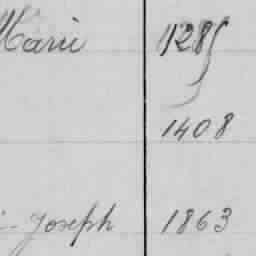 Marie 1285
1408
Joseph 1863